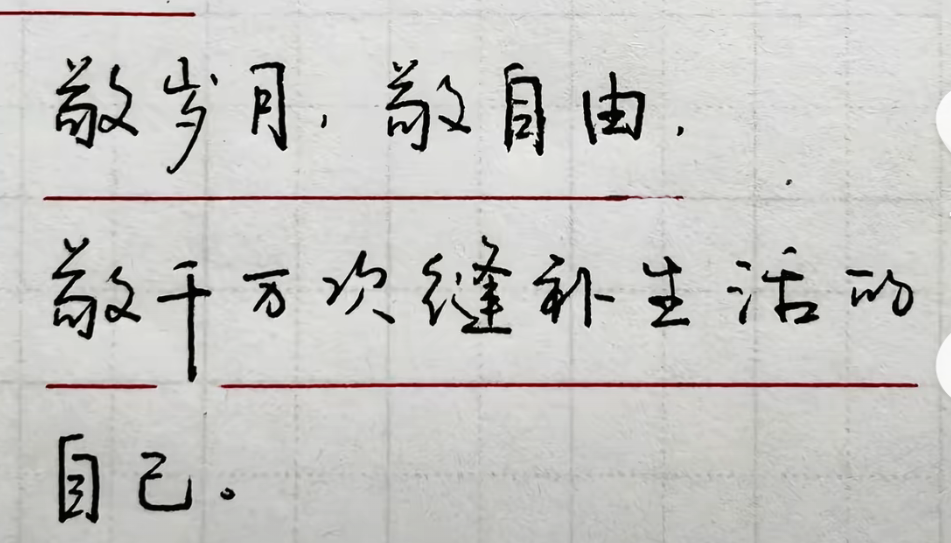 敬岁月,敬自由,
敬千万次缝补生活的
自己。